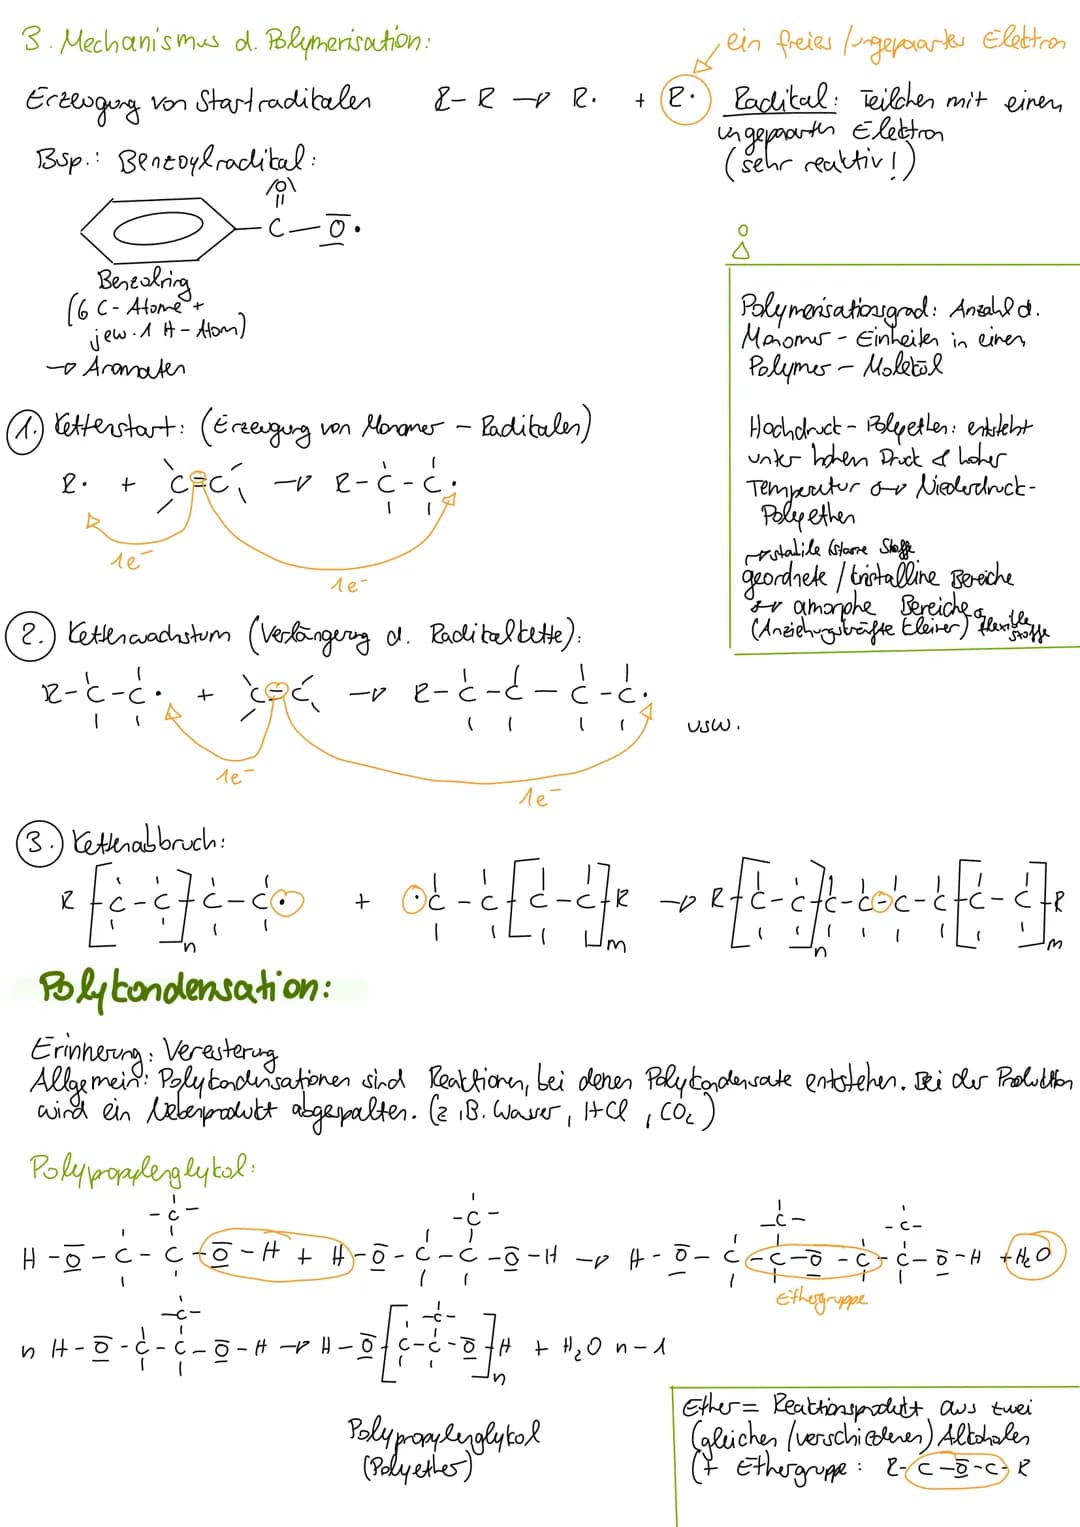 3. Mechanismus d. Polymerisation:
ein freies / ungepaartes Elektron
Erzeugung von Startradikalen R-R → R· + R·
Radikal: Teilchen mit einem
ungepaarten Elektron
(sehr reaktiv!)
Bsp.: Benzoylradikal:
|O|
C-O·
Benzolring
(6 C-Atome +
jew. 1 H-Atom)
→ Aromaten
Polymerisationsgrad: Anzahl d.
Monomer-Einheiten in einem
Polymer-Molekül
Hochdruck-Polyethen: entsteht
unter hohem Druck & hoher
Temperatur ↔ Niederdruck-
Polyethen
→ stabile/starre Stoffe
geordnete / kristalline Bereiche
↔ amorphe Bereiche → flexible
(Anziehungskräfte kleiner) Stoffe
1. Kettenstart: (Erzeugung von Monomer-Radikalen)
R· + C=C → R-C-C·
1e⁻
1e⁻
2. Kettenwachstum (Verlängerung d. Radikalkette):
R-C-C· + C=C → R-C-C-C-C·
usw.
1e⁻
1e⁻
3. Kettenabbruch:
R[C-C]n C-C· + ·C-C[C-C]m R → R[C-C]n C-C-C-C[C-C]m R
Polykondensation:
Erinnerung: Veresterung
Allgemein: Polykondensationen sind Reaktionen, bei denen Polykondensate entstehen. Bei der Produktion
wird ein Nebenprodukt abgespalten. (z.B. Wasser, HCl, CO₂)
Polypropylenglykol:
-C- -C- -C- -C-
H-O-C-C-O-H + H-O-C-C-O-H → H-O-C-C-O-C-C-O-H + H₂O
Ethergruppe
-C- -C-
n H-O-C-C-O-H → H-O[C-C-O]n H + H₂O n-1
Polypropylenglykol
(Polyether)
Ether = Reaktionsprodukt aus zwei
(gleichen/verschiedenen) Alkoholen
(+ Ethergruppe: R-C-O-C-R